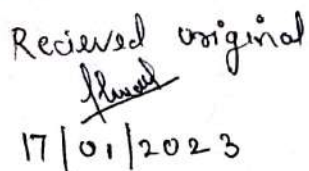 Recieved original
17/01/2023